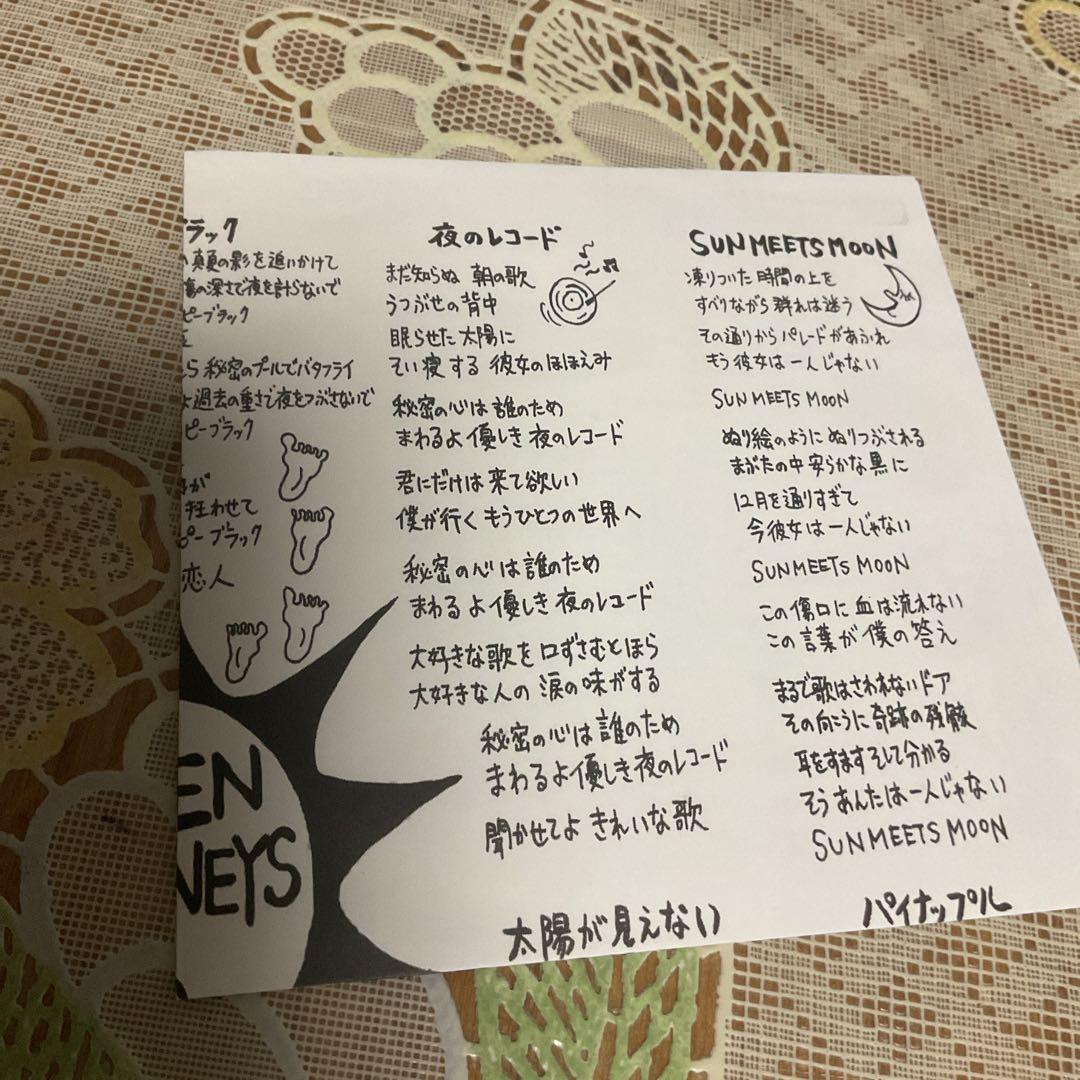 ラック
真顔の影を追いかけて
傷の深さで夜を計らないで
ピーブラック
ら 秘密のプールでバタフライ
過去の重さで夜をつぶさないで
ピーブラック
が
狂わせて
ピーブラック
恋人
EN
NEYS
夜のレコード
まだ知らぬ 朝の歌
うつぶせの背中
眠らせた太陽に
てい寝する 彼女のほほえみ
秘密の心は誰のため
まわるよ優しき夜のレコード
君にだけは来て欲しい
僕が行くもうひとつの世界へ
秘密の心は誰のため
まわるよ優しき夜のレコード
大好きな歌を口ずさむとほら
大好きな人の涙の味がする
秘密の心は誰のため
まわるよ優しき夜のレコード
聞かせてよ きれいな歌
太陽が見えない
SUN MEETS MOON
凍りついた時間の上を
すべりながら群れは迷う
その通りからパレードがあふれ
もう彼女は一人じゃない
SUN MEETS MOON
ぬり絵のようにぬりつぶされる
まぶたの中安らかな黒に
12月を通りすぎて
今彼女は一人じゃない
SUN MEETS MOON
この傷口に血は流れない
この言葉が僕の答え
まるで歌はさわれないドア
その向こうに奇跡の残骸
耳をすますそして分かる
そうあんたは一人じゃない
SUN MEETS MOON
パイナップル